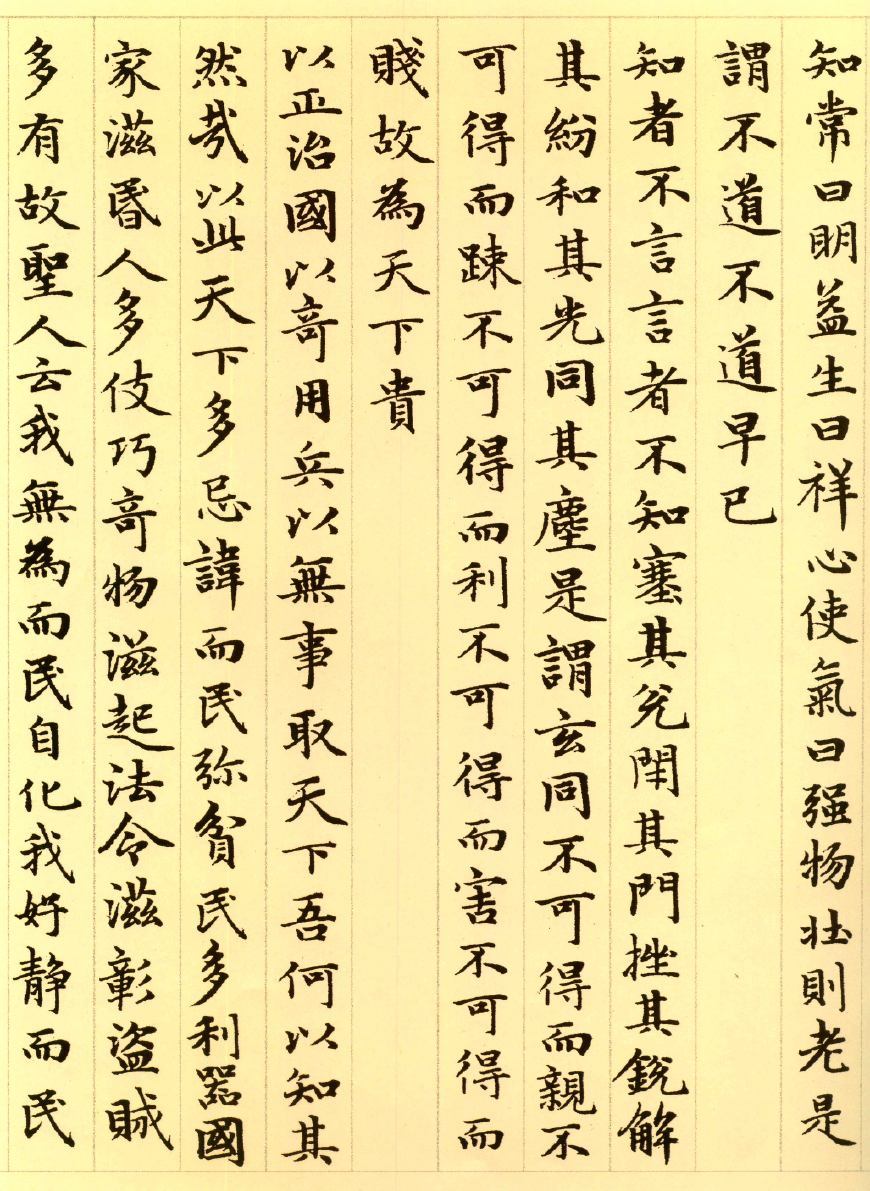 知常曰明益生曰祥心使氣曰强物壯則老是
謂不道不道早已
知者不言言者不知塞其兊閇其門挫其銳解
其紛和其光同其塵是謂玄同不可得而親不
可得而踈不可得而利不可得而害不可得而
賤故為天下貴
以正治國以竒用兵以無事取天下吾何以知其
然哉以此天下多忌諱而民弥貧民多利器國
家滋昬人多伎巧竒物滋起法令滋彰盜賊
多有故聖人云我無為而民自化我好静而民